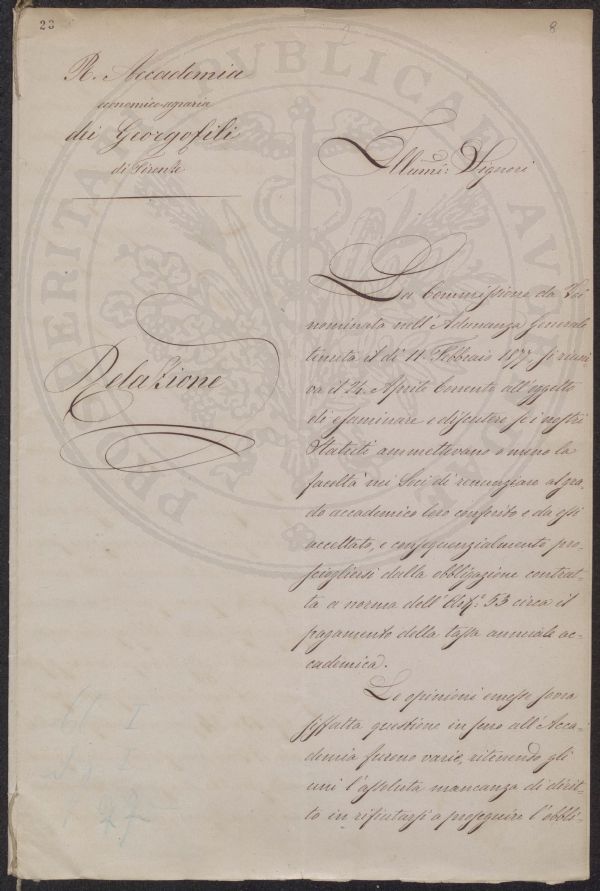 23
8
R. Accademia
economico-agraria
dei Georgofili
di Firenze
Relazione
Illumi: Signori
La Commissione da Voi
nominata nell'Adunanza Generale
tenuta il dì 11. Febbraio 1877, si riuni-
va il 24. Aprile Corrente all'oggetto
di esaminare e discutere se i nostri
Statuti ammettevano o meno la
facoltà nei Soci di renunziare al gra-
do accademico loro conferito e da essi
accettato, e consequenzialmente pro-
sciogliersi dalla obbligazione contrat-
ta a norma dell'Art.° 53 circa il
pagamento della tassa annuale ac-
cademica.
Le opinioni emesse sovra
siffatta questione in seno all'Acca-
demia furono varie, ritenendo gli
uni l'assoluta mancanza di dirit-
to in rifiutarsi a proseguire l'obbli-
PROSPERITATI PUBLICAE AUGENDAE